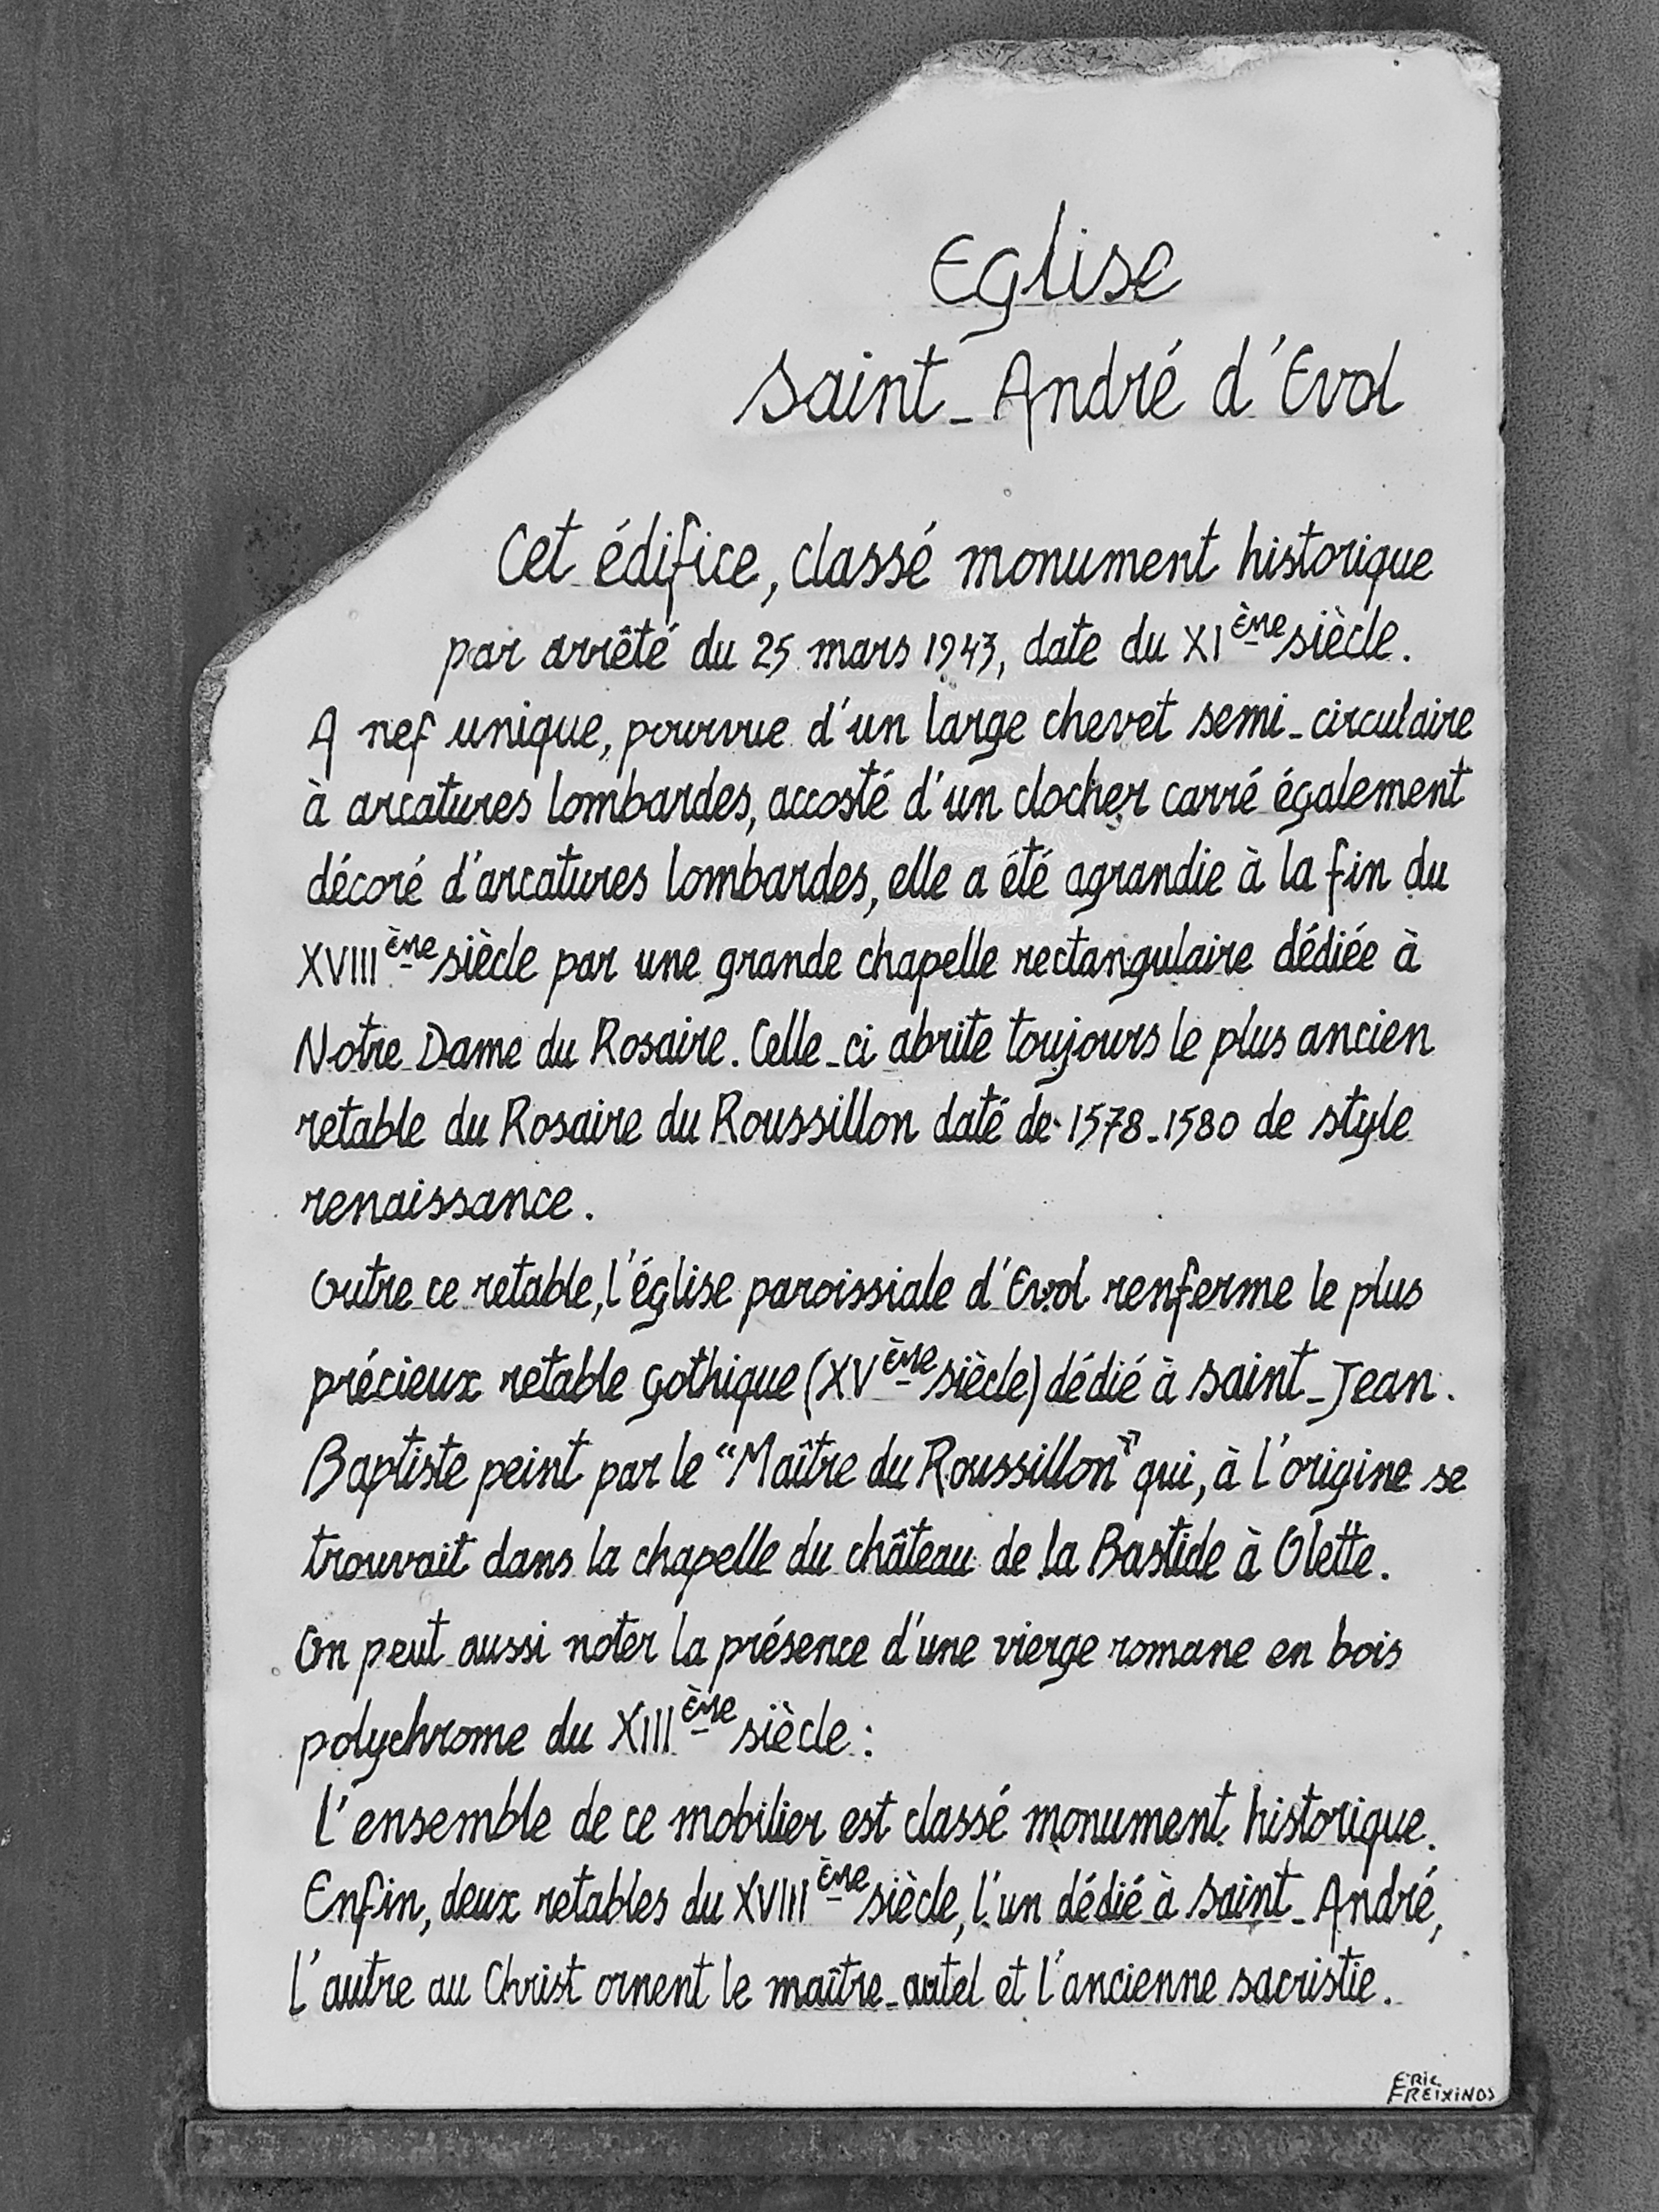 Eglise
Saint-André d'Evol
Cet édifice, classé monument historique
par arrêté du 25 mars 1943, date du XIème siècle.
A nef unique, pourvue d'un large chevet semi-circulaire
à arcatures lombardes, accosté d'un clocher carré également
décoré d'arcatures lombardes, elle a été agrandie à la fin du
XVIIIème siècle par une grande chapelle rectangulaire dédiée à
Notre Dame du Rosaire. Celle-ci abrite toujours le plus ancien
retable du Rosaire du Roussillon daté de 1578-1580 de style
renaissance.
Outre ce retable, l'église paroissiale d'Evol renferme le plus
précieux retable gothique (XVème siècle) dédié à Saint-Jean.
Baptiste peint par le "Maître du Roussillon" qui, à l'origine se
trouvait dans la chapelle du château de la Bastide à Olette.
On peut aussi noter la présence d'une vierge romane en bois
polychrome du XIIIème siècle :
L'ensemble de ce mobilier est classé monument historique.
Enfin, deux retables du XVIIIème siècle, l'un dédié à Saint-André,
l'autre au Christ ornent le maître-autel et l'ancienne sacristie.
ERIC
FREIXINOS